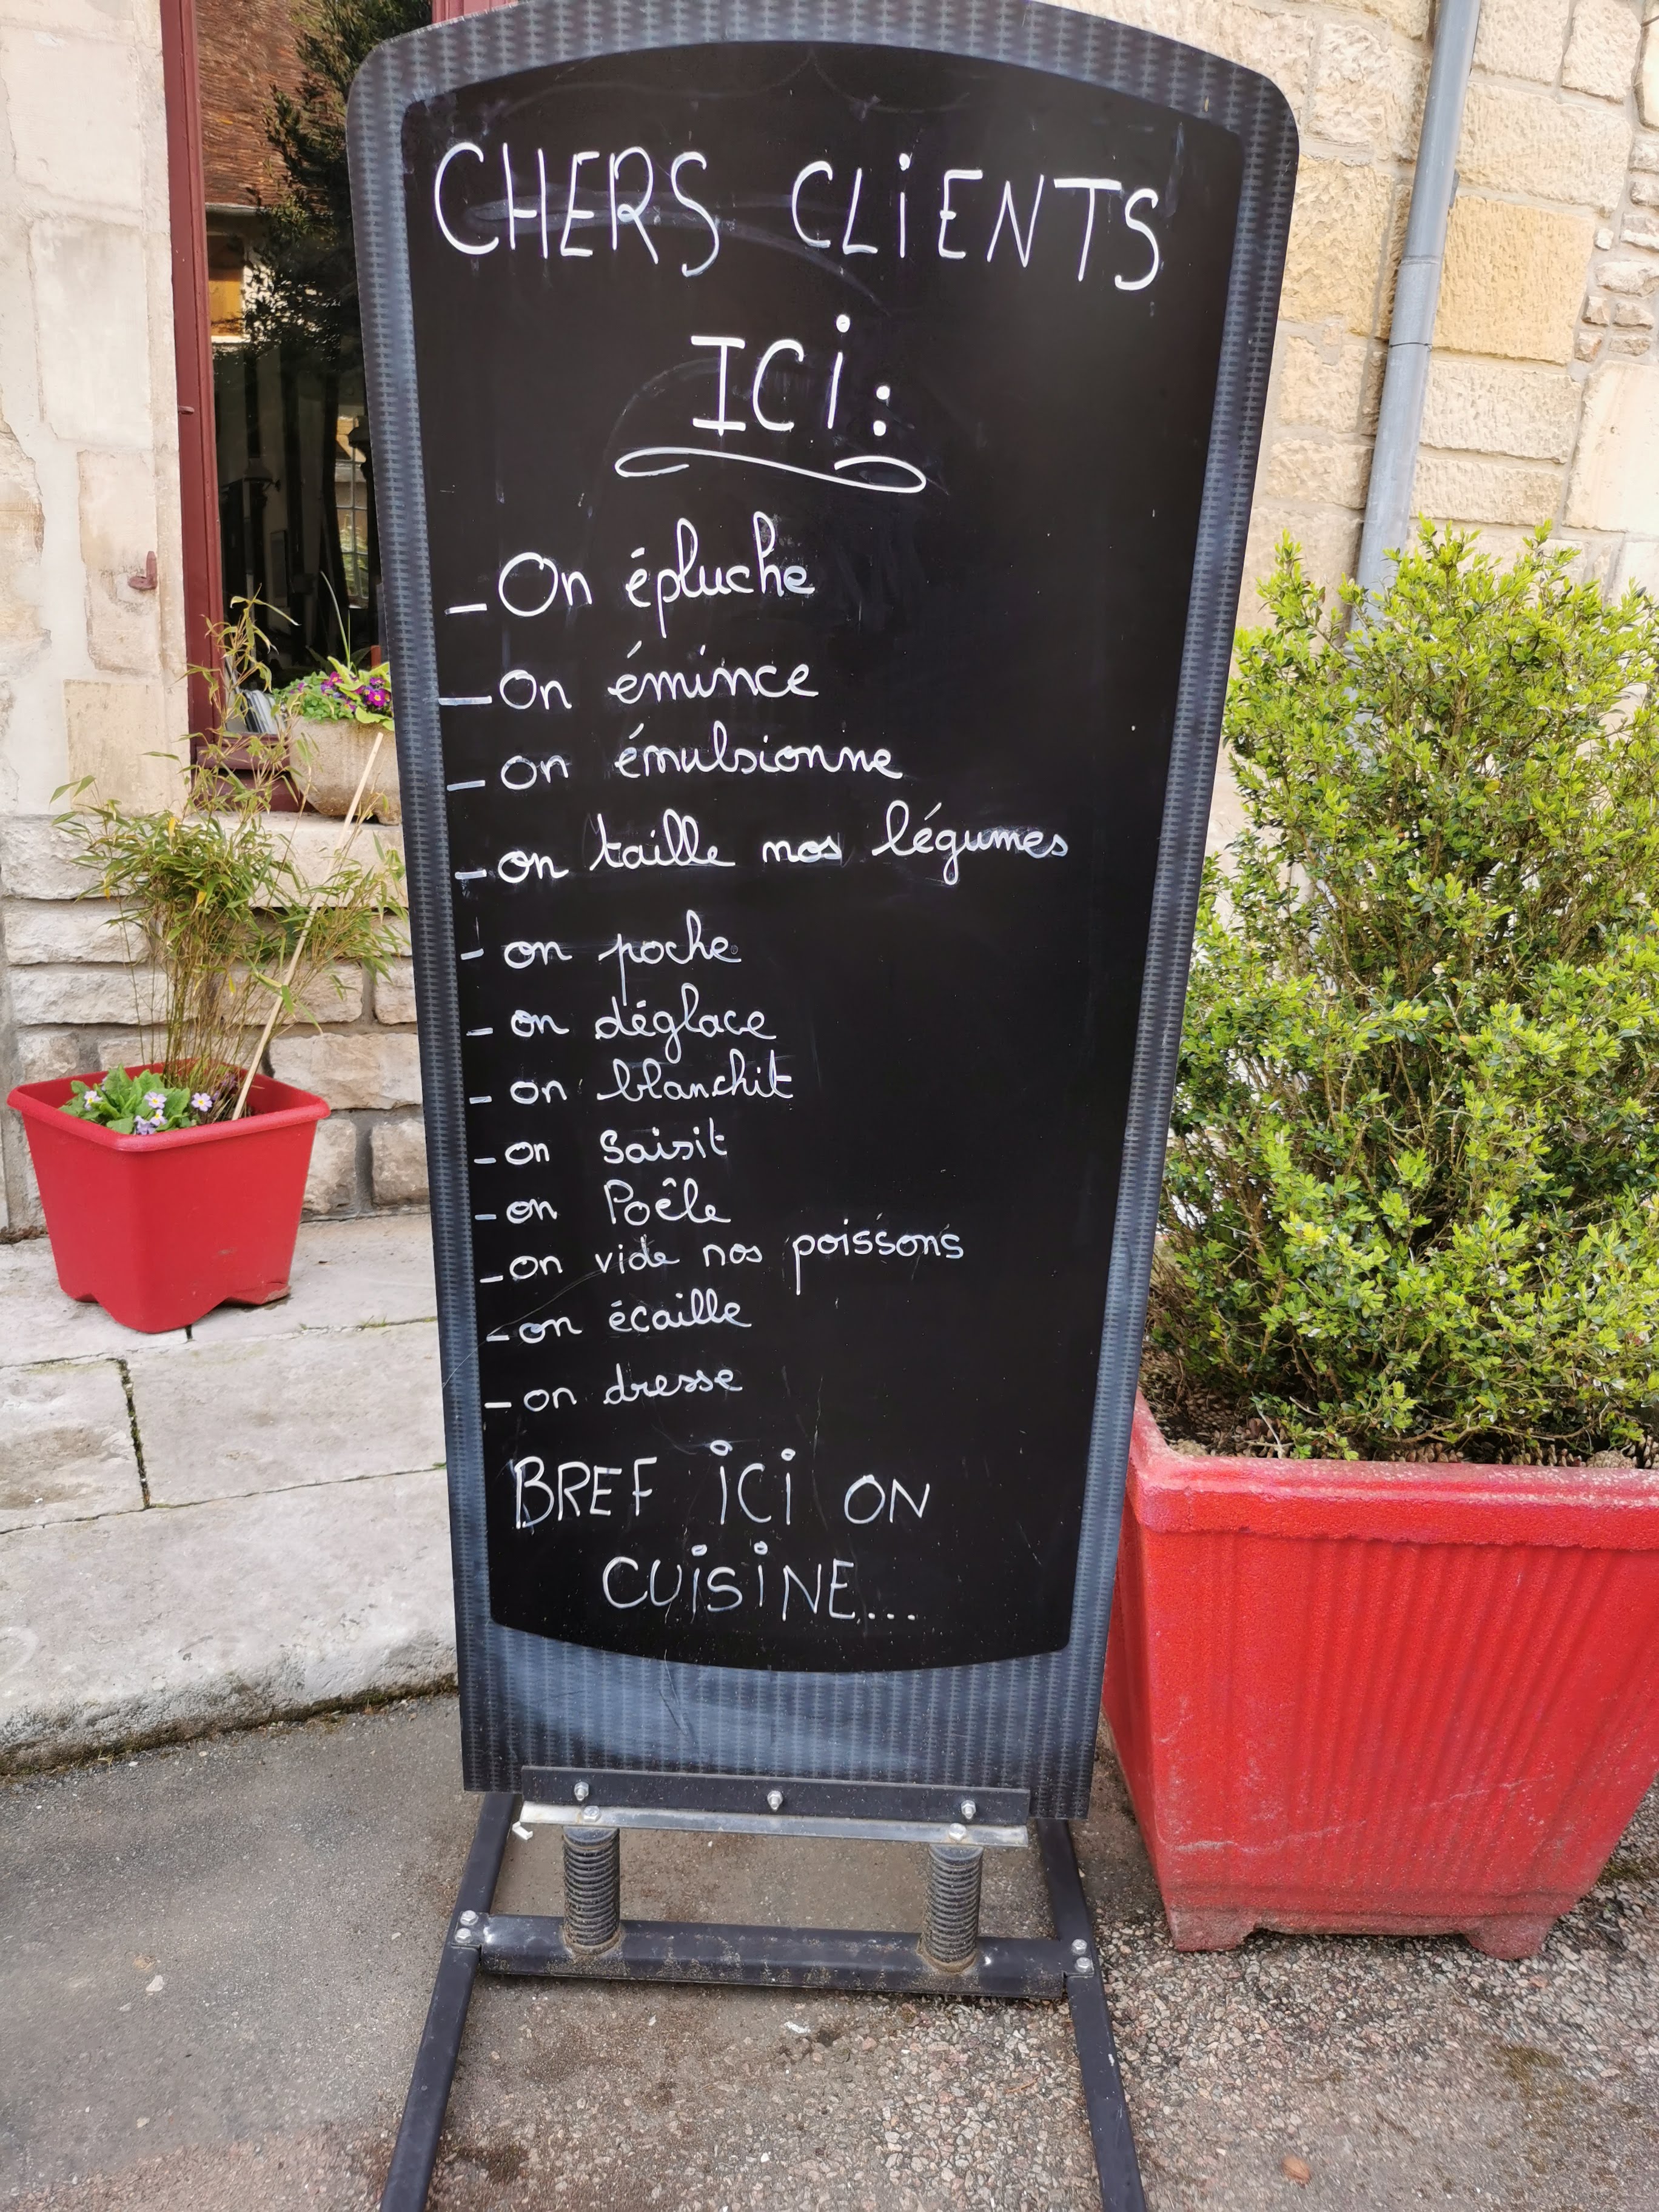 CHERS CLiENTS
ICi:
- On épluche
- On émince
- on émulsionne
- on taille nos légumes
- on poche
- on déglace
- on blanchit
- on Saisit
- on Poêle
- on vide nos poissons
- on écaille
- on dresse
BREF iCi ON
CUiSiNE...